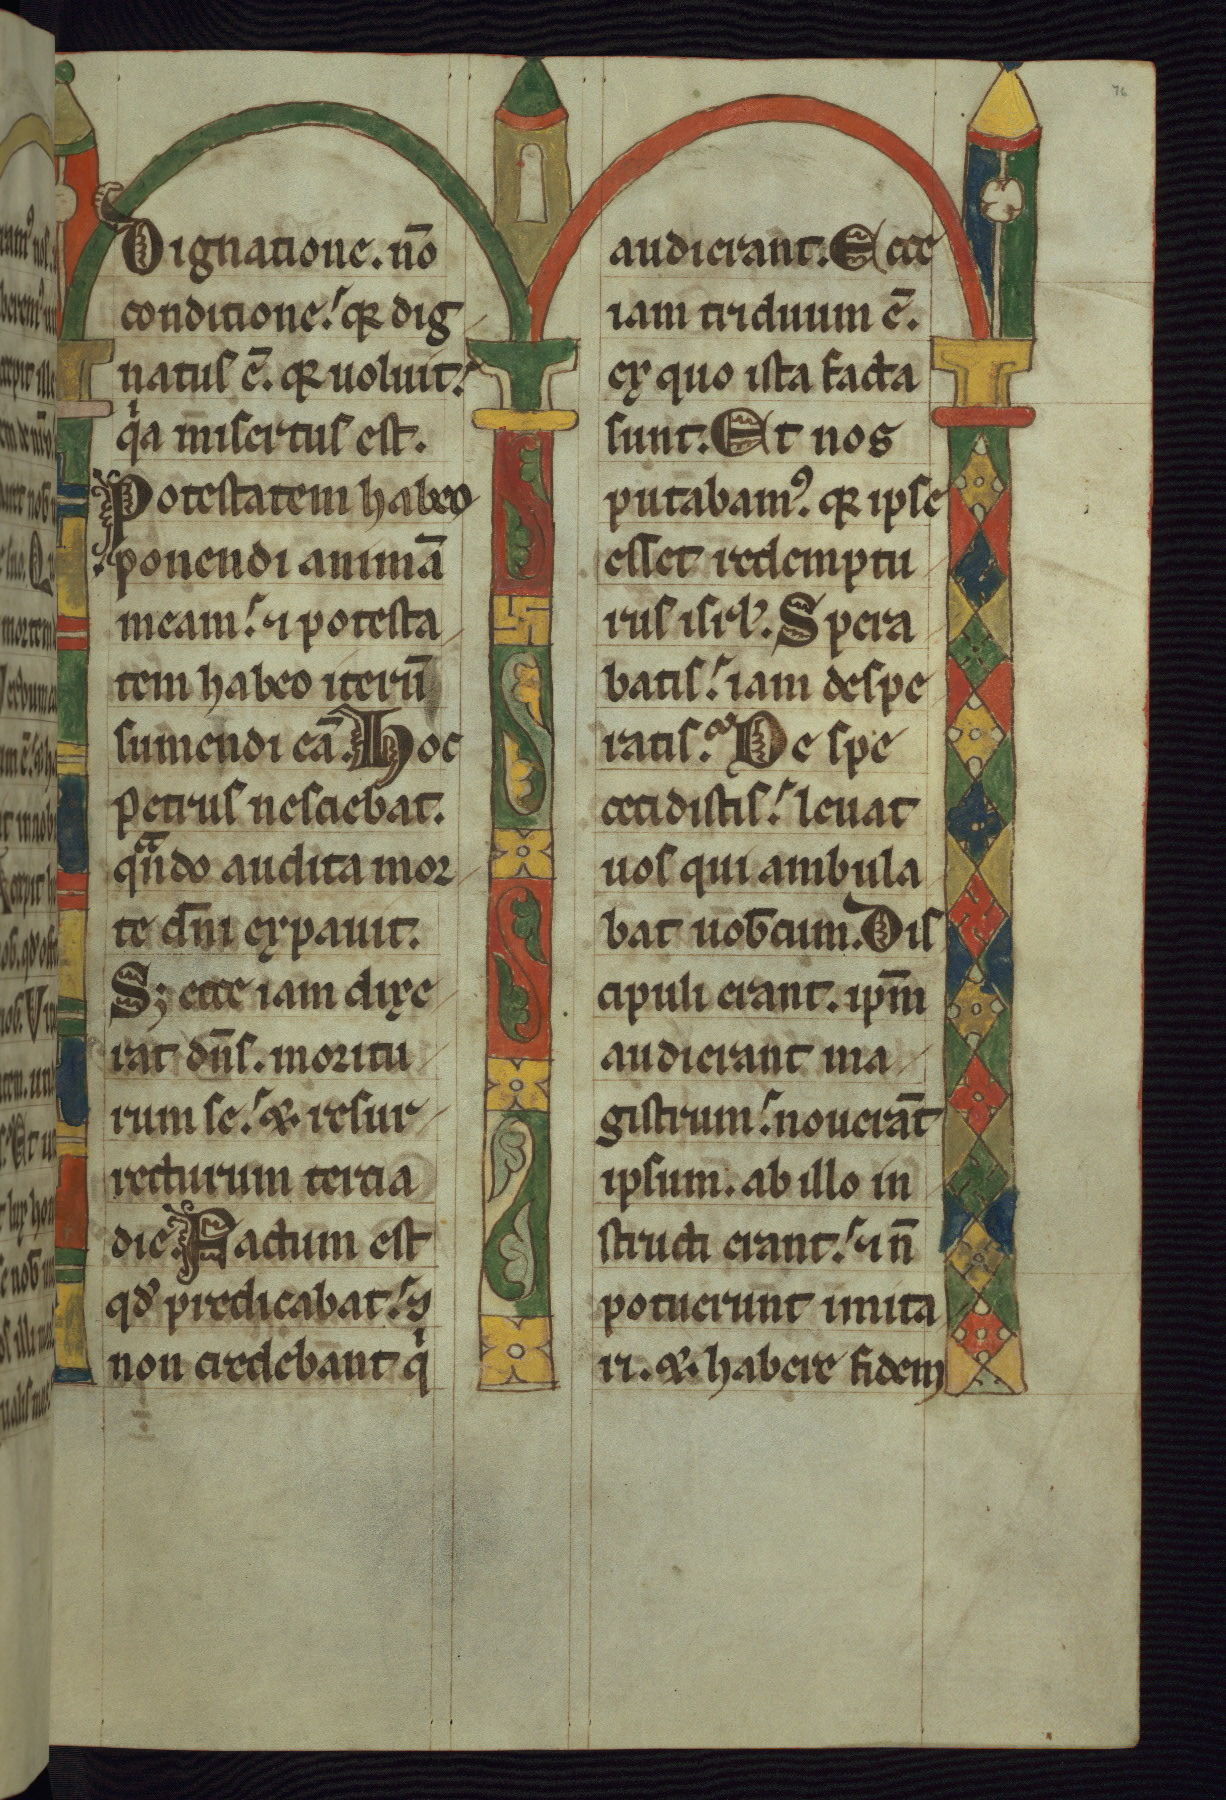 76
Dignatione. nō
conditione. qꝛ dig
natus ē. qꝛ uoluit.
qͥa misertus est.
Potestatem habeo
ponendi animā
meam. ⁊ potesta
tem habeo iterū
sumendi eā. Hoc
petrus nesciebat.
qn̄do audita mor
te dn̄i expauit.
Sꝫ ecce iam dixe
rat dn̄s. moritu
rum se. & resur
recturum tercia
die. Factum est
qd̄ predicabat. ⁊
non credebant qͥ
audierant. Ecce
iam triduum ē.
ex quo ista facta
sunt. Et nos
putabamꝰ. qꝛ ipse
esset redemptu
rus isrl̄. Spera
batis. iam despe
ratis. De spe
cecidistis. leuat
uos qui ambula
bat uob̄cum. Dis
cipuli erant. ipm̄
audierant ma
gistrum. nouerāt
ipsum. ab illo in
structi erant. ⁊ n̄
potuerunt imita
ri. & habere fidem